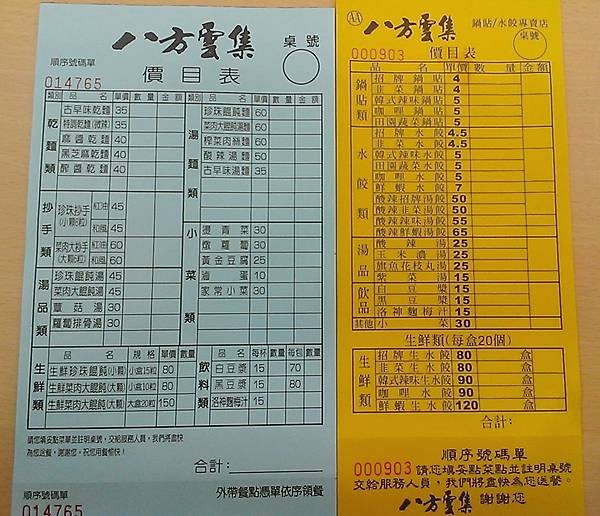 八方雲集
桌號
順序號碼單
014765
價目表
類別 品名 單價 數量 金額
乾麵類
古早味乾麵 35
特調乾麵(微辣) 35
麻醬乾麵 40
黑芝麻乾麵 40
酢醬乾麵 40
抄手類
珍珠抄手(小顆8粒) 紅油 45
和風 45
菜肉大抄手(大顆6粒) 紅油 60
和風 60
湯品類
珍珠餛飩湯 45
菜肉大餛飩湯 45
蕈菇湯 30
蘿蔔排骨湯 30
類別 品名 單價 數量 金額
湯麵類
珍珠餛飩麵 60
菜肉大餛飩湯麵 60
榨菜肉絲麵 60
酸辣湯麵 50
古早味湯麵 35
小菜類
燙青菜 30
燉蘿蔔 30
黃金豆腐 25
滷蛋 10
家常小菜 30
生鮮類
品名 規格 單價 數量
生鮮珍珠餛飩(小顆) 小盒15粒 80
生鮮菜肉大餛飩(大顆) 小盒10粒 80
生鮮菜肉大餛飩(大顆) 大盒20粒 150
飲料類
品名 每杯 數量 每包 數量
白豆漿 15 70
黑豆漿 15 80
洛神麴梅汁 15
請您填妥點菜單並註明桌號,交給服務人員,我們將盡快
為您送餐,謝謝您,祝您用餐愉快!
合計:
順序號碼單
外帶餐點憑單依序領餐
014765
AA
八方雲集
鍋貼/水餃專賣店
000903
價目表
桌號
品名 單價 數量 金額
鍋貼類
招牌鍋貼 4
韭菜鍋貼 4
韓式辣味鍋貼 5
咖哩鍋貼 5
田園蔬菜鍋貼 5
水餃類
招牌水餃 4.5
韭菜水餃 4.5
韓式辣味水餃 5
田園蔬菜水餃 5
咖哩水餃 5
鮮蝦水餃 7
酸辣招牌湯餃 50
酸辣韭菜湯餃 50
酸辣辣味湯餃 55
酸辣鮮蝦湯餃 65
湯品
酸辣湯 25
玉米濃湯 25
旗魚花枝丸湯 25
紫菜湯 15
飲品
白豆漿 15
黑豆漿 15
洛神麴梅汁 15
其他 小菜 30
生鮮類(每盒20個)
生鮮類
招牌生水餃 80 盒
韭菜生水餃 80 盒
韓式辣味生水餃 90 盒
咖哩生水餃 90 盒
鮮蝦生水餃 120 盒
合計:
順序號碼單
000903 請您填妥點菜點並註明桌號
交給服務人員,我們將盡快為您送餐。
八方雲集 謝謝您